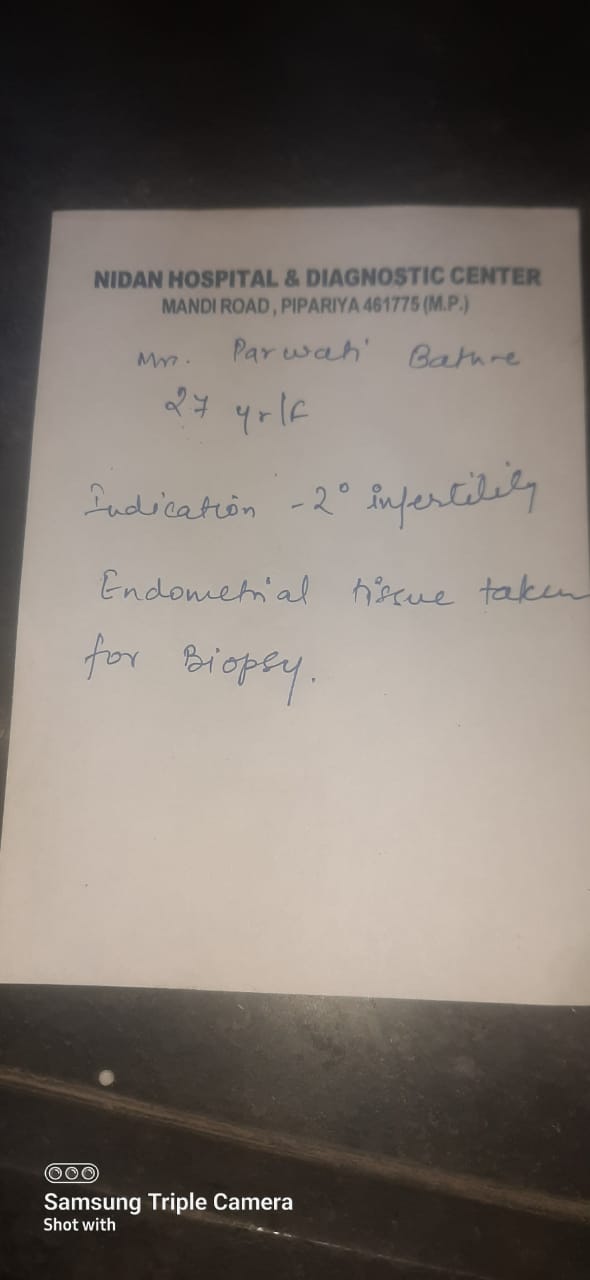 NIDAN HOSPITAL & DIAGNOSTIC CENTER
MANDI ROAD, PIPARIYA 461775 (M.P.)
Mrs. Parwati Bathre
27 yr/F
Indication - 2° infertility
Endometrial tissue taken
for Biopsy.
Samsung Triple Camera
Shot with